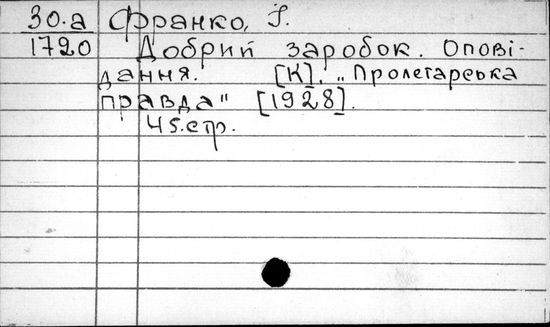 30.а Франко, І.
1720 Добрий заробок. Опові-
дання. [К]. „Пролетарська
правда" [1928].
45.стр.